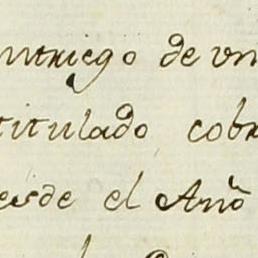 ntriego de un
titulado cobr
esde el Año